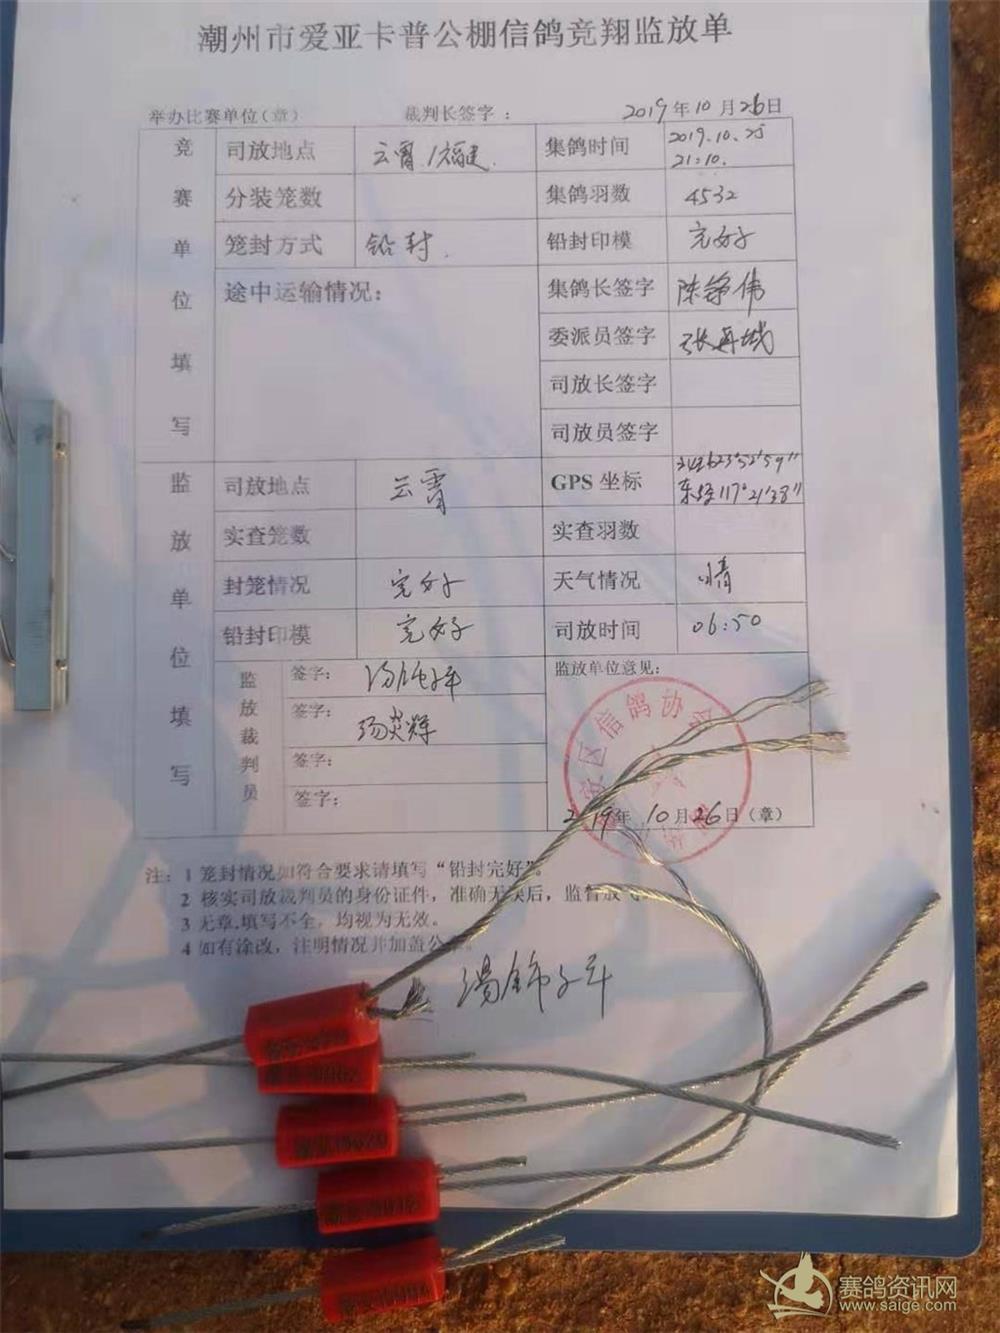 潮州市爱亚卡普公棚信鸽竞翔监放单
举办比赛单位(章) 裁判长签字: 2019年10月26日
竞赛单位填写
司放地点 云霄/福建. 集鸽时间 2019.10.25 21:10.
分装笼数 集鸽羽数 4532
笼封方式 铅封. 铅封印模 完好
途中运输情况: 集鸽长签字 陈铮伟
委派员签字 张再城
司放长签字
司放员签字
监放单位填写
司放地点 云霄 GPS坐标 北纬23°52'59"
东经117°21'38"
实查笼数 实查羽数
封笼情况 完好 天气情况 晴
铅封印模 完好 司放时间 06:50
监放裁判员 签字: 监放单位意见:
签字: 汤炎辉
签字:
签字:
区信鸽协会
2019年10月26日(章)
注: 1 笼封情况如符合要求请填写“铅封完好”。
2 核实司放裁判员的身份证件，准确无误后，监督放飞。
3 无章.填写不全，均视为无效。
4 如有涂改，注明情况并加盖公章。
赛鸽资讯网
www.saige.com